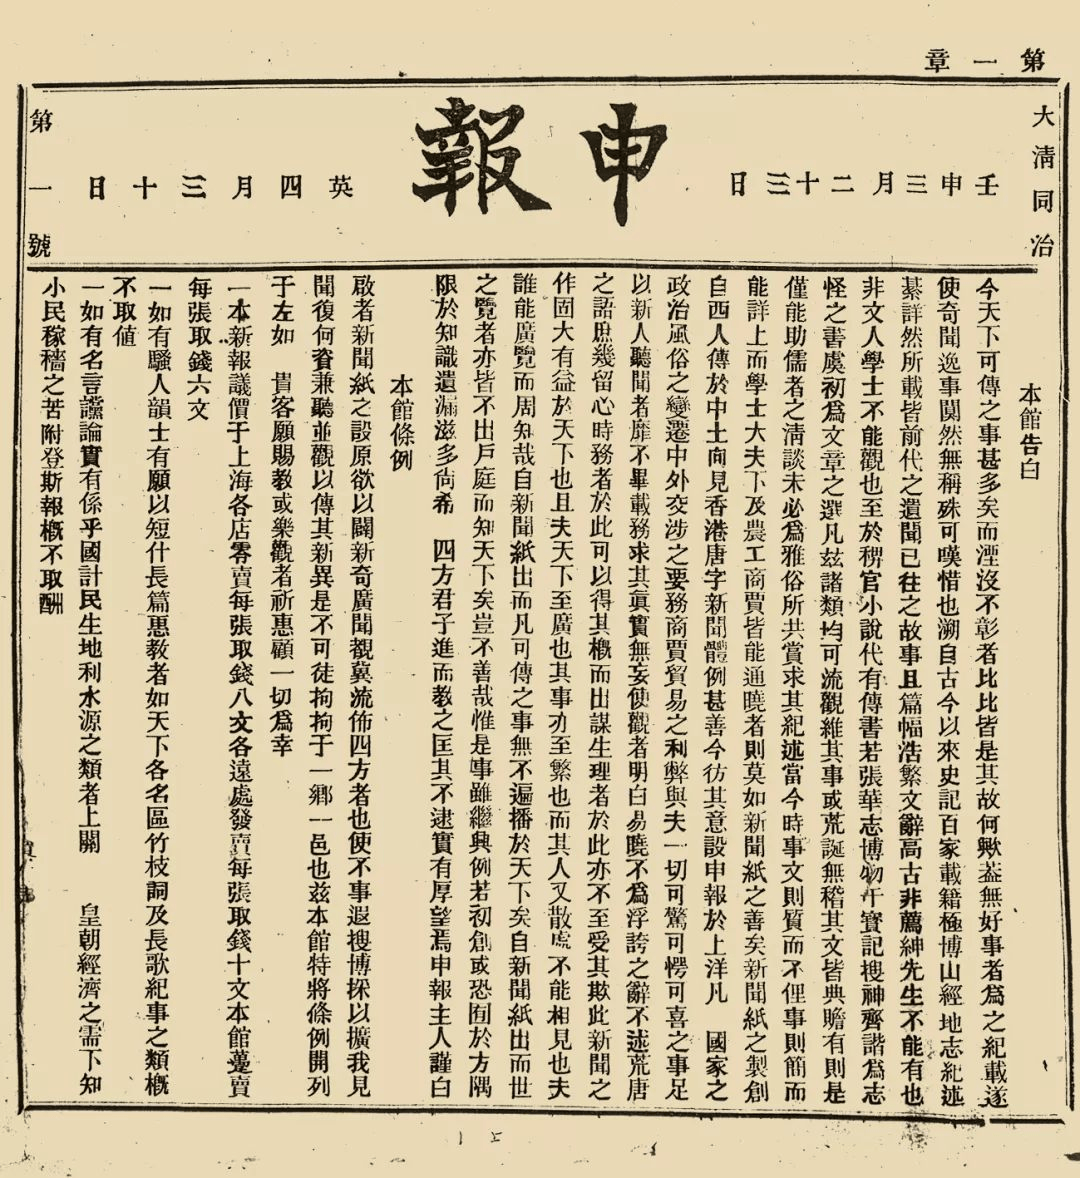 第一章
大淸同治
壬申三月二十三日
申報
英四月三十日
第一號
本館告白
今天下可傳之事甚多矣而湮沒不彰者比比皆是其故何歟蓋無好事者爲之紀載遂
使奇聞逸事闃然無稱殊可嘆惜也溯自古今以來史記百家載籍極博山經地志紀述
綦詳然所載皆前代之遺聞已往之故事且篇幅浩繁文辭高古非薦紳先生不能有也
非文人學士不能觀也至於稗官小說代有傳書若張華志博物干寶記搜神齊諧爲志
怪之書虞初爲文章之選凡茲諸類均可流觀維其事或荒誕無稽其文皆典贍有則是
僅能助儒者之淸談未必爲雅俗所共賞求其紀述當今時事文則質而不俚事則簡而
能詳上而學士大夫下及農工商賈皆能通曉者則莫如新聞紙之善矣新聞紙之製創
自西人傳於中土向見香港唐字新聞體例甚善今彷其意設申報於上洋凡　國家之
政治風俗之變遷中外交涉之要務商賈貿易之利弊與夫一切可驚可愕可喜之事足
以新人聽聞者靡不畢載務求其眞實無妄使觀者明白易曉不爲浮誇之辭不述荒唐
之語庶幾留心時務者於此可以得其槪而出謀生理者於此亦不至受其欺此新聞之
作固大有益於天下也且夫天下至廣也其事亦至繁也而其人又散處不能相見也夫
誰能廣覽而周知哉自新聞紙出而凡可傳之事無不遍播於天下矣自新聞紙出而世
之覽者亦皆不出戶庭而知天下矣豈不善哉惟是事雖繼興例若初創或恐囿於方隅
限於知識遺漏滋多尙希　四方君子進而敎之匡其不逮實有厚望焉申報主人謹白
本館條例
啟者新聞紙之設原欲以闢新奇廣聞覩冀流佈四方者也使不事遐搜博採以擴我見
聞復何資兼聽並觀以傳其新異是不可徒拘拘于一鄉一邑也茲本館特將條例開列
于左如　貴客願賜敎或樂觀者祈惠顧一切爲幸
一本新報議價于上海各店零賣每張取錢八文各遠處發賣每張取錢十文本館躉賣
每張取錢六文
一如有騷人韻士有願以短什長篇惠敎者如天下各名區竹枝詞及長歌紀事之類槪
不取值
一如有名言讜論實有係乎國計民生地利水源之類者上關　皇朝經濟之需下知
小民稼穡之苦附登斯報槪不取酬